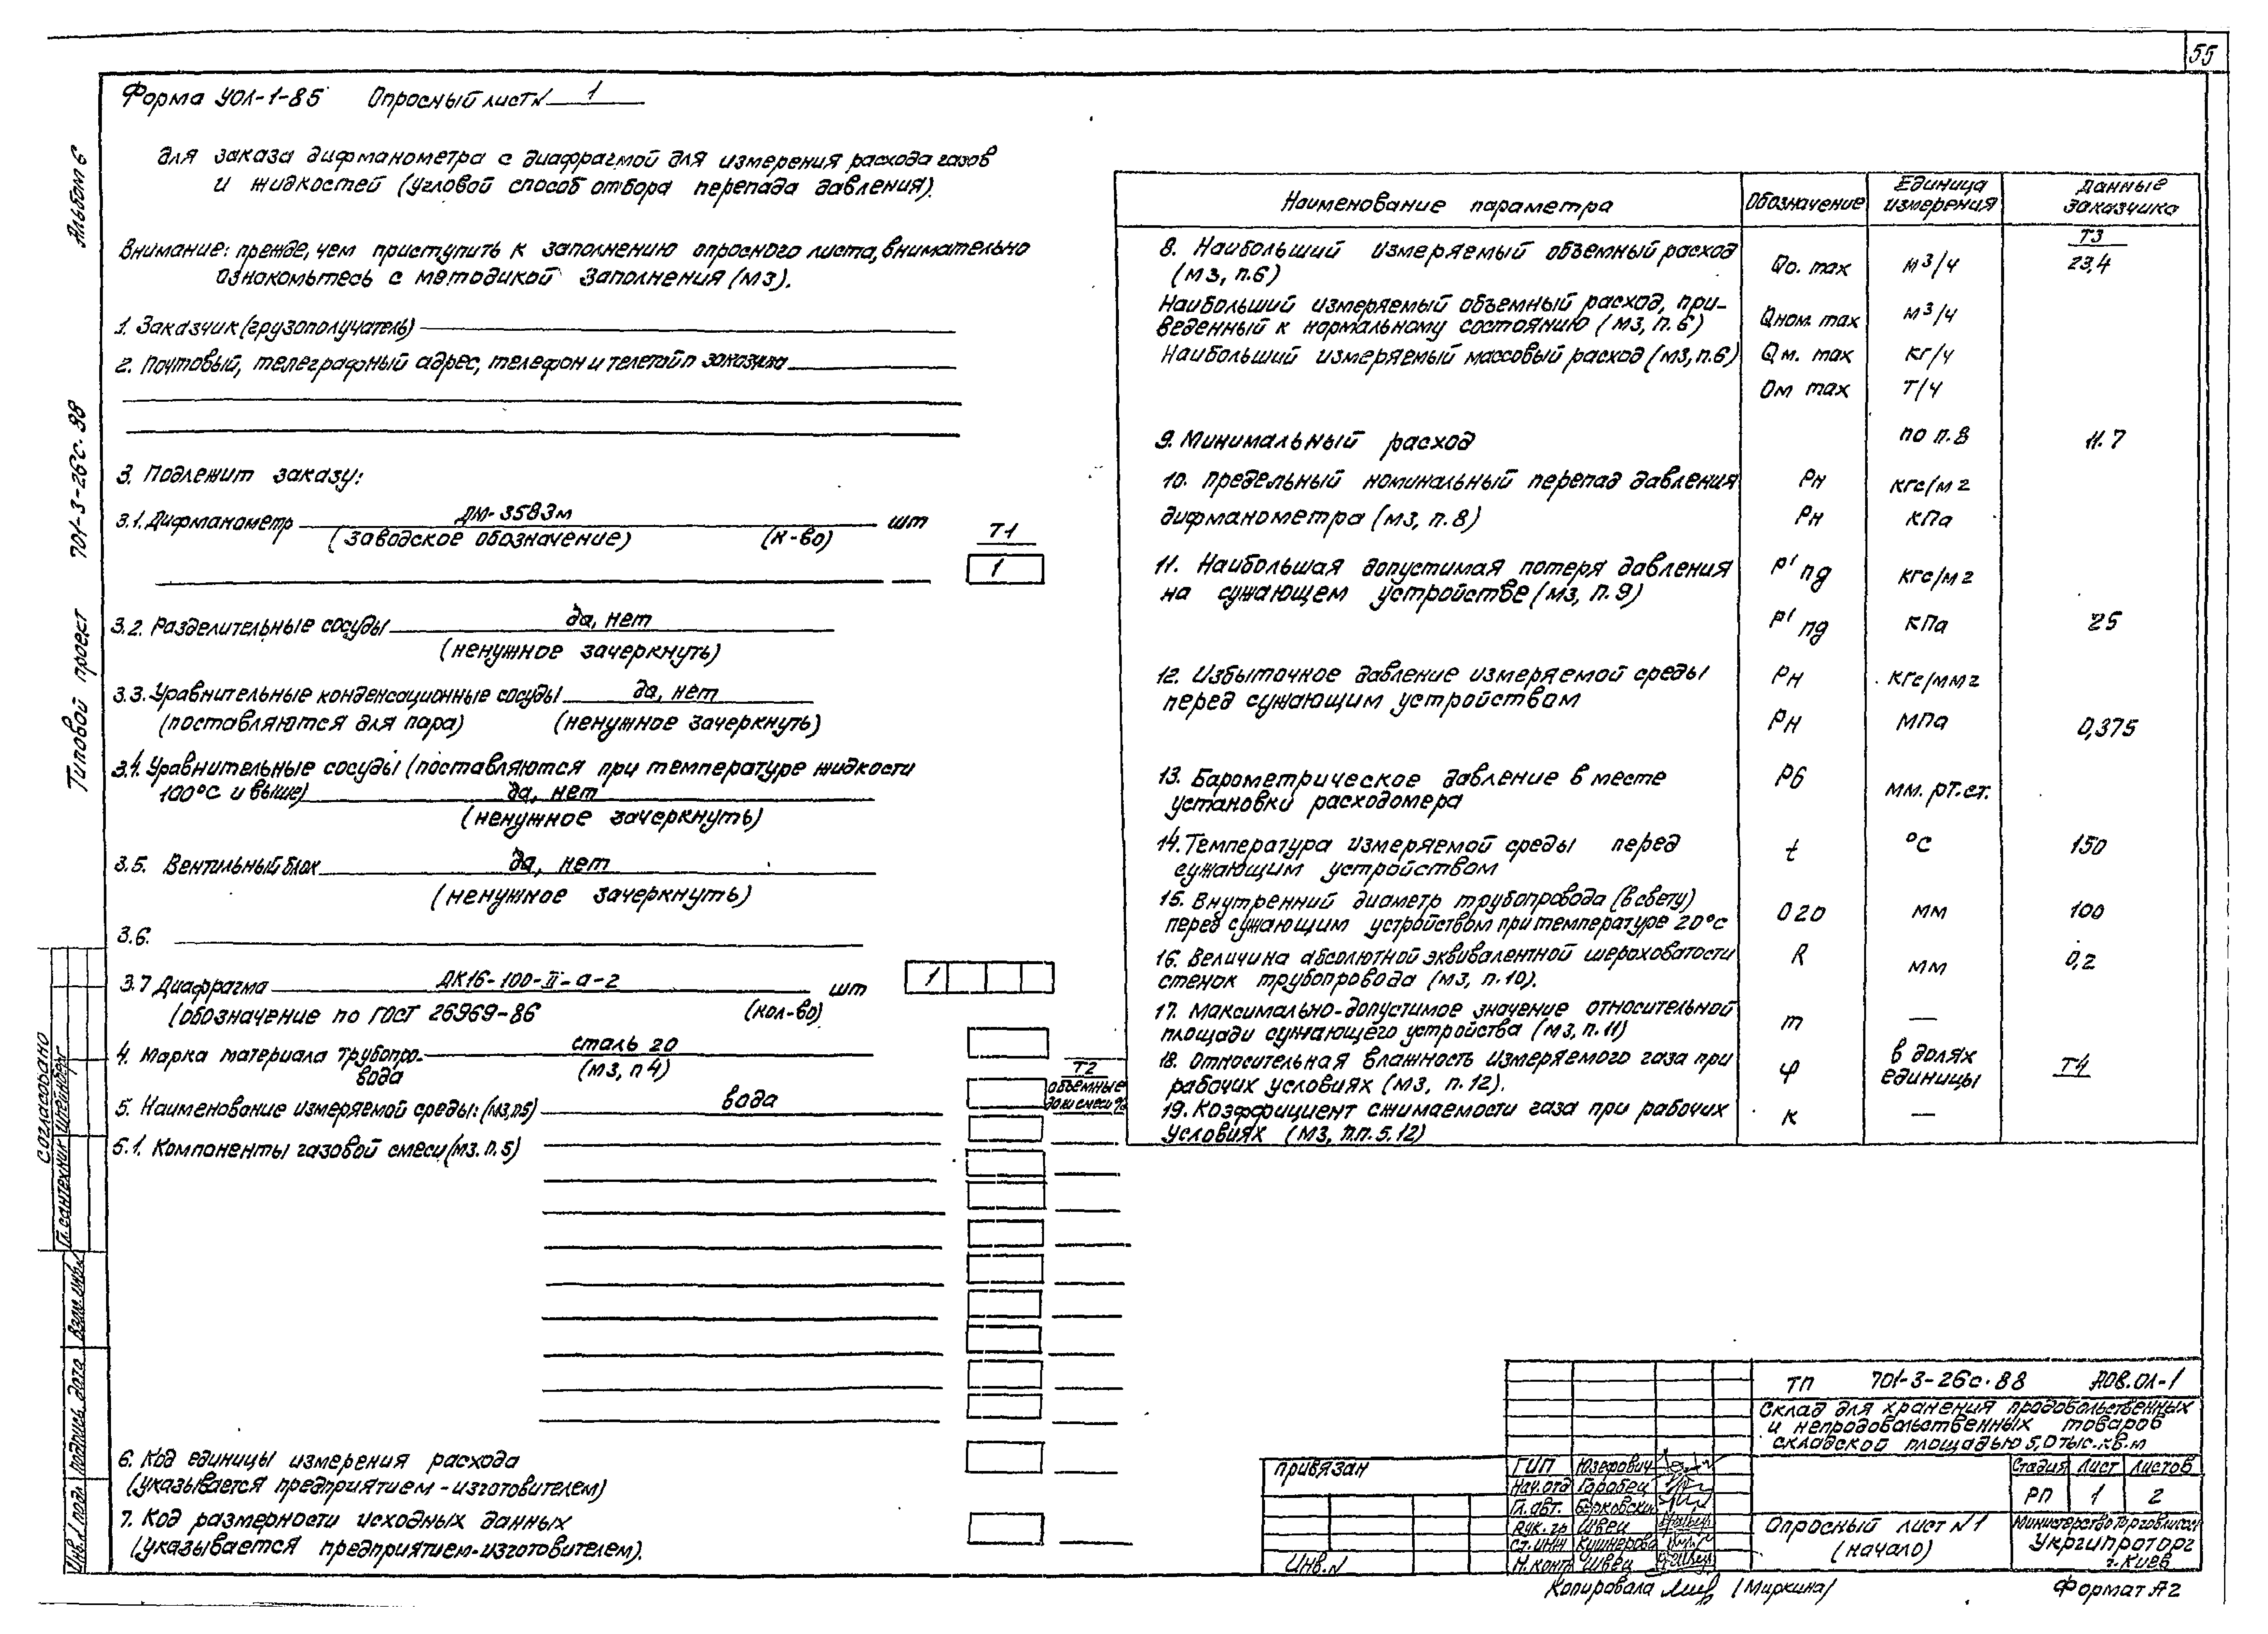 55
Форма УОЛ-1-85 Опросный лист N 1
для заказа дифманометра с диафрагмой для измерения расхода газов
и жидкостей (угловой способ отбора перепада давления).
Внимание: прежде, чем приступить к заполнению опросного листа, внимательно
ознакомьтесь с методикой заполнения (МЗ).
1. Заказчик (грузополучатель)
2. Почтовый, телеграфный адрес, телефон и телетайп заказчика
3. Подлежит заказу:
3.1. Дифманометр ДМ-3583м шт
(заводское обозначение) (к-во)
Т1
1
3.2. Разделительные сосуды да, нет
(ненужное зачеркнуть)
3.3. Уравнительные конденсационные сосуды да, нет
(поставляются для пара) (ненужное зачеркнуть)
3.4. Уравнительные сосуды (поставляются при температуре жидкости
100°С и выше) да, нет
(ненужное зачеркнуть)
3.5. Вентильный блок да, нет
(ненужное зачеркнуть)
3.6.
3.7 Диафрагма ДК16-100-II-а-2 шт 1
(обозначение по ГОСТ 26969-86 (кол-во)
4. Марка материала трубопро- сталь 20
вода (МЗ, п4)
Т2
объемные
доли смеси %
5. Наименование измеряемой среды: (МЗ, п5) вода
5.1. Компоненты газовой смеси (МЗ. п.5)
6. Код единицы измерения расхода
(указывается предприятием-изготовителем)
7. Код размерности исходных данных
(указывается предприятием-изготовителем).
Наименование параметра Обозначение Единица измерения Данные заказчика
Т3
8. Наибольший измеряемый объемный расход
(МЗ, п.6) Qо. max м3/ч 23,4
Наибольший измеряемый объемный расход, при-
веденный к нормальному состоянию (МЗ, п.6) Qном. max м3/ч
Наибольший измеряемый массовый расход (МЗ, п.6) Qм. max кг/ч
Qм max Т/ч
9. Минимальный расход по п.8 11.7
10. Предельный номинальный перепад давления Рн кгс/м2
дифманометра (МЗ, п.8) Рн кПа
11. Наибольшая допустимая потеря давления
на сужающем устройстве (МЗ, п.9) Р' пд кгс/м2
Р' пд кПа 25
12. Избыточное давление измеряемой среды Рн кгс/мм2
перед сужающим устройством
Рн МПа 0,375
13. Барометрическое давление в месте Рб
установки расходомера мм. рт.ст.
14. Температура измеряемой среды перед t °С 150
сужающим устройством
15. Внутренний диаметр трубопровода (в свету)
перед сужающим устройством при температуре 20°С D20 мм 100
16. Величина абсолютной эквивалентной шероховатости R мм 0,2
стенок трубопровода (МЗ, п.10).
17. Максимально-допустимое значение относительной
площади сужающего устройства (МЗ, п.11) m —
18. Относительная влажность измеряемого газа при в долях
рабочих условиях (МЗ, п.12). φ единицы Т4
19. Коэффициент сжимаемости газа при рабочих к —
условиях (МЗ, п.п.5.12)
Альбом 6
Типовой проект 701-3-26с.88
Согласовано
Гл.сантехник Штейнберг
Взам.инв.N
Подпись, дата
Инв.N подл
ТП 701-3-26с.88 АОВ.ОЛ-1
Склад для хранения продовольственных
и непродовольственных товаров
складской площадью 5,0 тыс.кв.м
Привязан
Инв.N
ГИП Юзефович
Нач.отд Горобец
Гл.авт. Берковский
Рук.гр Швец
Ст.инж Кушнерова
Н.контр Швец
Стадия Лист Листов
РП 1 2
Опросный лист N1
(начало)
Министерство торговли СССР
Укргипроторг
г.Киев
Копировала (Миркина)
Формат А2